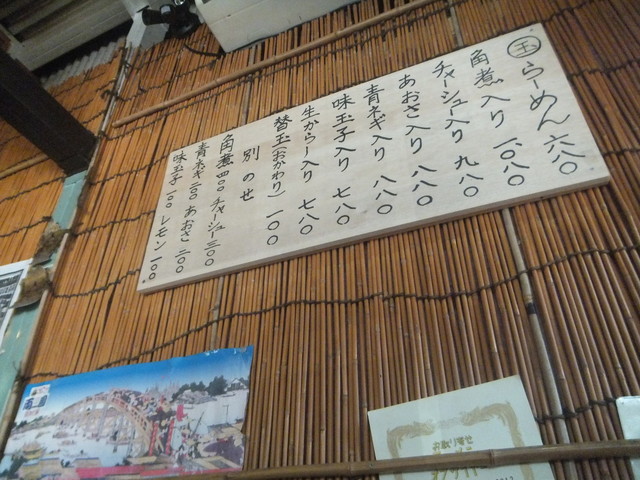 玉らーめん 六八〇
角煮入り 一〇八〇
チャーシュー入り 九八〇
あおさ入り 八八〇
青ネギ入り 八八〇
味玉子入り 七八〇
生からし入り 七八〇
替玉(おかわり) 一〇〇
別のせ
角煮 四〇〇 チャーシュー 三〇〇
青ネギ 二〇〇 あおさ 二〇〇
味玉子 一〇〇 レモン 一〇〇
お取り寄せ